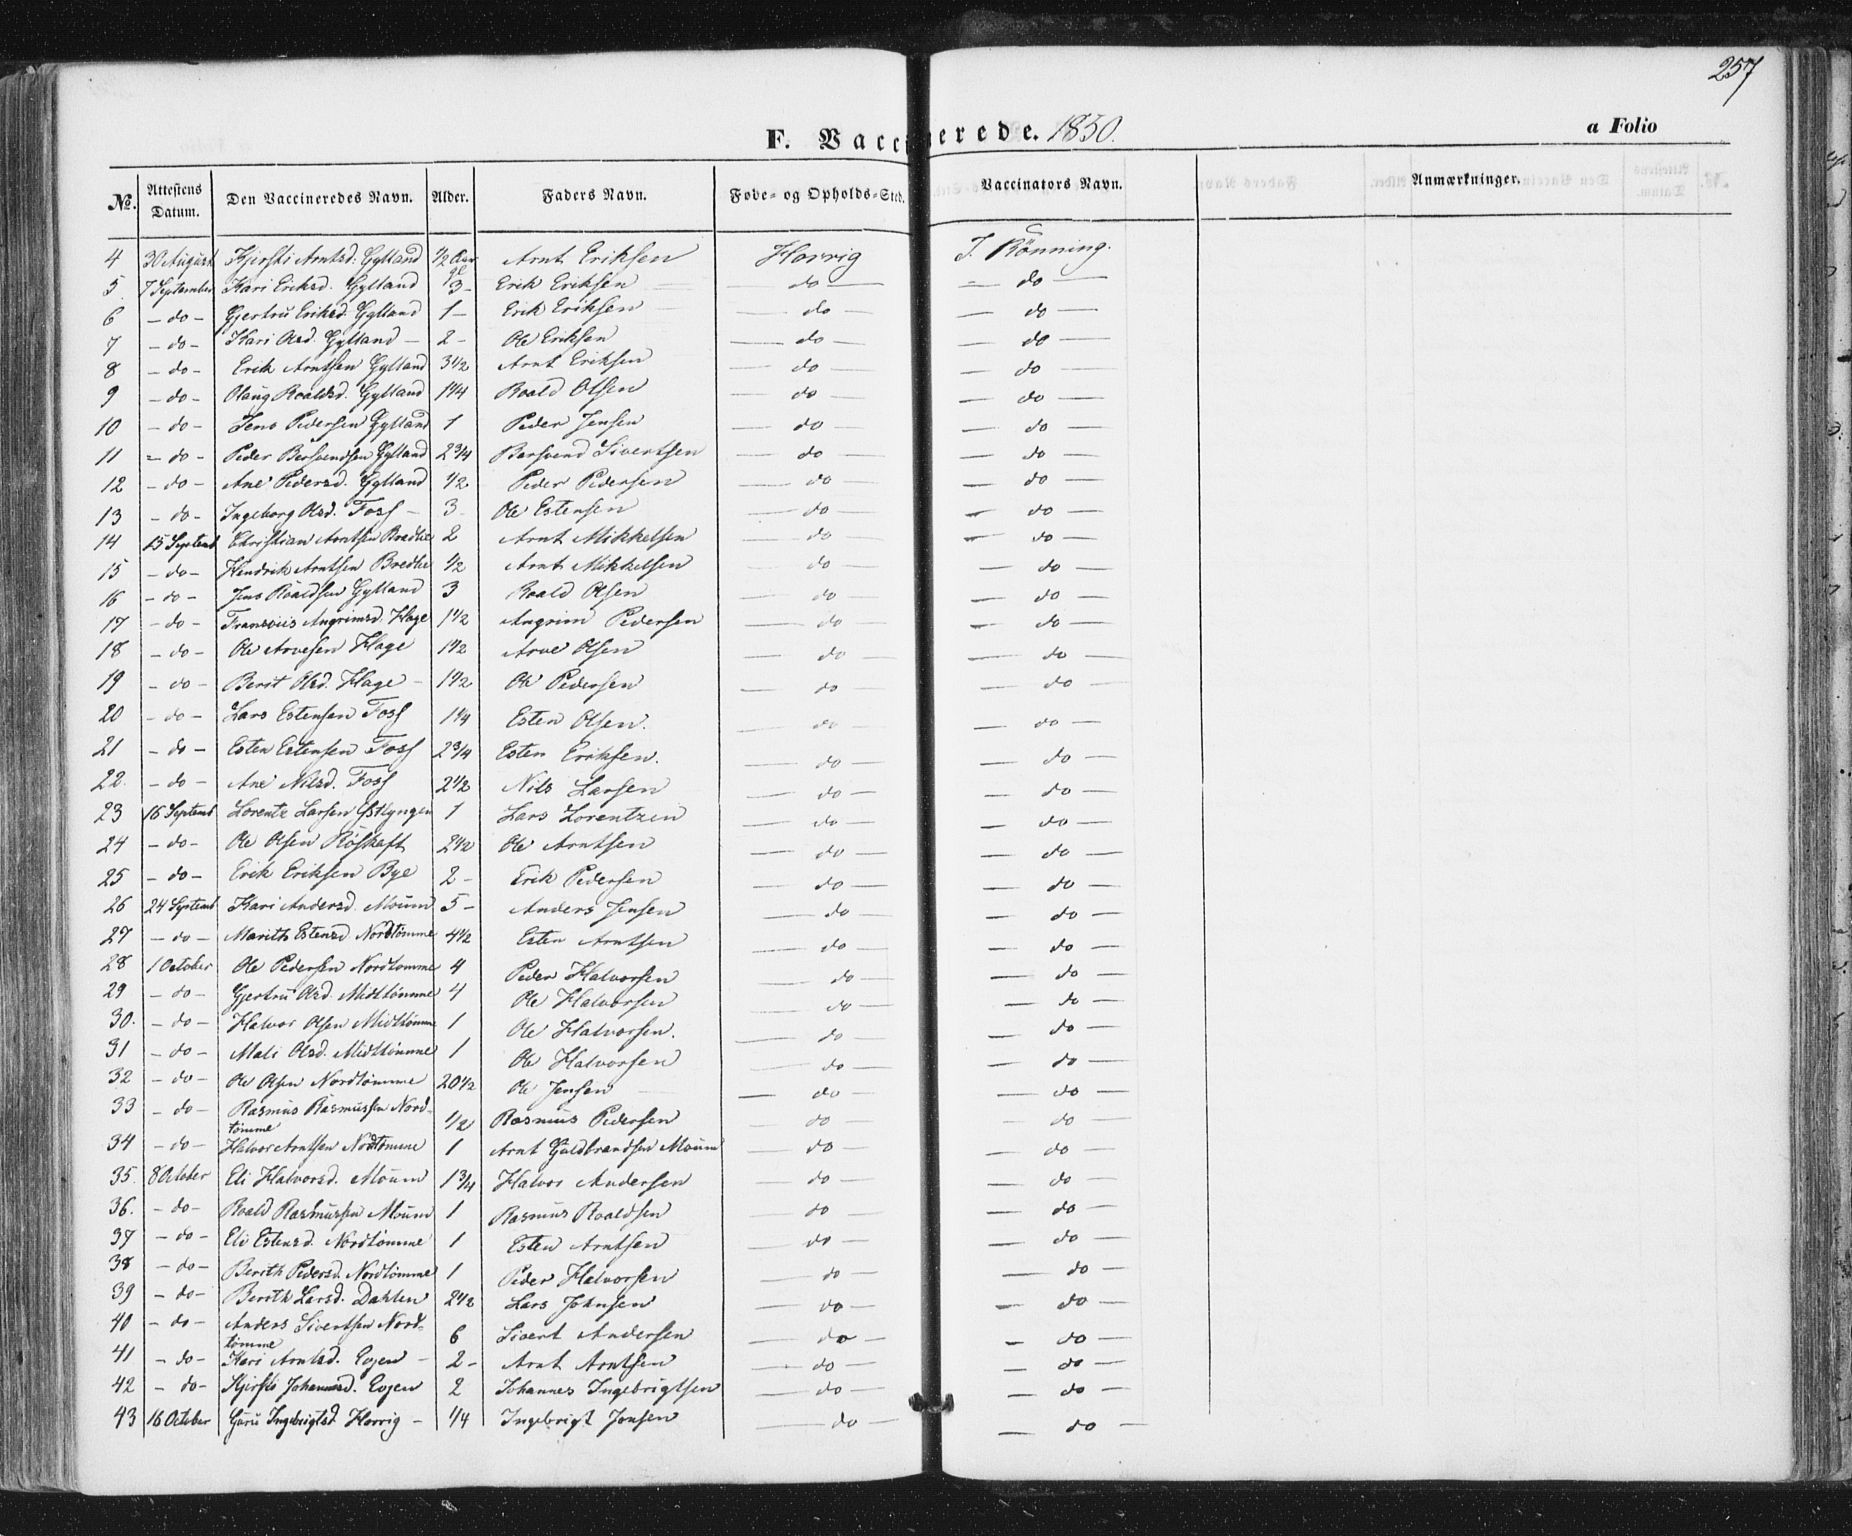 257
F. Vaccinerede. 1850. a Folio
No. Attestens Datum. Den Vaccineredes Navn. Alder. Faders Navn. Føde- og Opholds-Sted. Vaccinators Navn. Anmærkninger.
4 30 August Kjersti Arntsd. Gylland 1/2 Aar Arnt Eriksen Horrig J. Rönning.
5 7 September Kari Eriksd. Gylland 3 - Erik Eriksen do — — do —
6 - do - Gjertru Eriksd. Gylland 1 - Erik Eriksen — do — — do —
7 - do - Kari Olsd. Gylland - 2 - Ole Eriksen — do — — do —
8 - do - Erik Arntsen Gylland 3 1/2 Arnt Eriksen — do — — do —
9 - do - Olaug Roaldsd. Gylland 1 1/4 Roald Olsen — do — — do —
10 - do - Jens Pedersen Gylland 1 Peder Jensen — do — — do —
11 - do - Peder Bersvendsen Gylland 2 3/4 Bersvend Sivertsen — do — — do —
12 - do - Ane Pedersd. Gylland 1/2 Peder Pedersen — do — — do —
13 - do - Ingeborg Olsd. Foss - 3 - Ole Estensen — do — — do —
14 15 Septemb Christian Arntsen Bredlie 2 Arnt Mikkelsen — do — — do —
15 - do - Hendrik Arntsen Bredlie 1/2 Arnt Mikkelsen — do — — do —
16 - do - Jens Roaldsen Gylland 3 Roald Olsen — do — — do —
17 - do - Angrimsd. Hage 1 1/2 Angrim Pedersen — do — — do —
18 - do - Ole Arvesen Hage 1 1/2 Arve Olsen — do — — do —
19 - do - Berit Olsd. Hage - 1 1/2 Ole Pedersen — do — — do —
20 - do - Lars Estensen Foss 1 1/4 Esten Olsen. — do — — do —
21 - do - Esten Estensen Foss 2 3/4 Esten Eriksen. — do — — do —
22. - do - Ane Nilsd. Foss 2 1/2 Nils Larsen — do — — do —
23 16 Septemb Lorentz Larsen Østlyngen 1 Lars Lorentzen — do — — do —
24 - do - Ole Olsen Röskaft 2 1/2 Ole Arntsen — do — — do —
25 - do - Erik Eriksen Bye 2 - Erik Pedersen — do — — do —
26 24 Septemb Kari Andersd. Moum 5 - Anders Jensen — do — — do —
27 - do - Marith Estensd Nordtömme 4 1/2 Esten Arntsen — do — — do —
28 1 October Ole Pedersen Nordtomme 4 Peder Halvorsen — do — — do —
29 - do - Gjertru Olsd. Midttömme 4 Ole Halvorsen — do — — do —
30. - do - Halvor Olsen Midttömme 1 Ole Halvorsen. — do — — do —
31 - do - Mali Olsd. Midttömme 1 Ole Halvorsen — do — — do —
32 - do - Ole Olsen Nordtömme 20 1/2 Ole Jensen — do — — do —
33 - do - Rasmus Rasmussen Nord-
tömme 1/2 Rasmus Pedersen — do — — do —
34 - do - Halvor Arntsen Nordtömme 1 Arnt Guldbrandsen Moum — do — — do —
35. 8 October Eli Halvorsd. Moum 1 3/4 Halvor Andersen — do — — do —
36. - do - Roald Rasmussen Moum 1 Rasmus Roaldsen — do — — do —
37 - do - Eli Estensd. Nordtomme 1 Esten Arntsen — do — — do —
38 - do - Berith Pedersd. Nordtömme 1 Peder Halvorsen — do — — do —
39 - do - Berith Larsd. Dahlen 2 1/2 Lars Johnsen — do — — do —
40 - do - Anders Sivertsen Nord-
tömme 6 Sivert Andersen — do — — do —
41 - do - Kari Arntsd. Evjen - 2 - Arnt Arntsen — do — — do —
42 - do - Kjersti Johannesd. Evjen 2 Johannes Ingebrigtsen — do — — do —
43 16 October Guru Ingebrigtsd Horrig - 1/4 Ingebrigt Jonsen — do — — do —